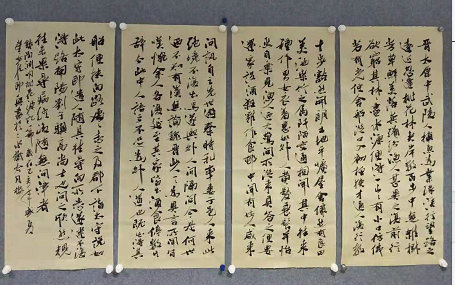 晉太康中武陵人捕魚為業緣溪行忘路之
遠近忽逢桃花林夾岸數百步中無雜樹
芳草鮮美落英繽紛漁人甚異之復前行
欲窮其林林盡水源便得一山山有小口
若有光便舍船從口入初極狹才通人復行數
十步豁然開朗土地平曠屋舍儼然有良田
美池桑竹之屬阡陌交通雞犬相聞其中往來
種作男女衣著悉如外人黃髮垂髫並怡
然自樂見漁人大驚問所從來具答之便要
還家設酒殺雞作食村中聞有此人咸來
問訊自云先世避秦時亂率妻子邑人來此
絕境不復出焉遂與外人間隔問今是何世
乃不知有漢無論魏晉此人一一為具言所聞皆
嘆惋餘人各復延至其家皆出酒食停數日
辭去此中人語云不足為外人道也既出得其
船便扶向路處處志之及郡下詣太守說如
此太守即遣人隨其往尋向所志遂迷不復
得路南陽劉子驥高尚士也聞之欣然規
往未果尋病終後遂無問津者